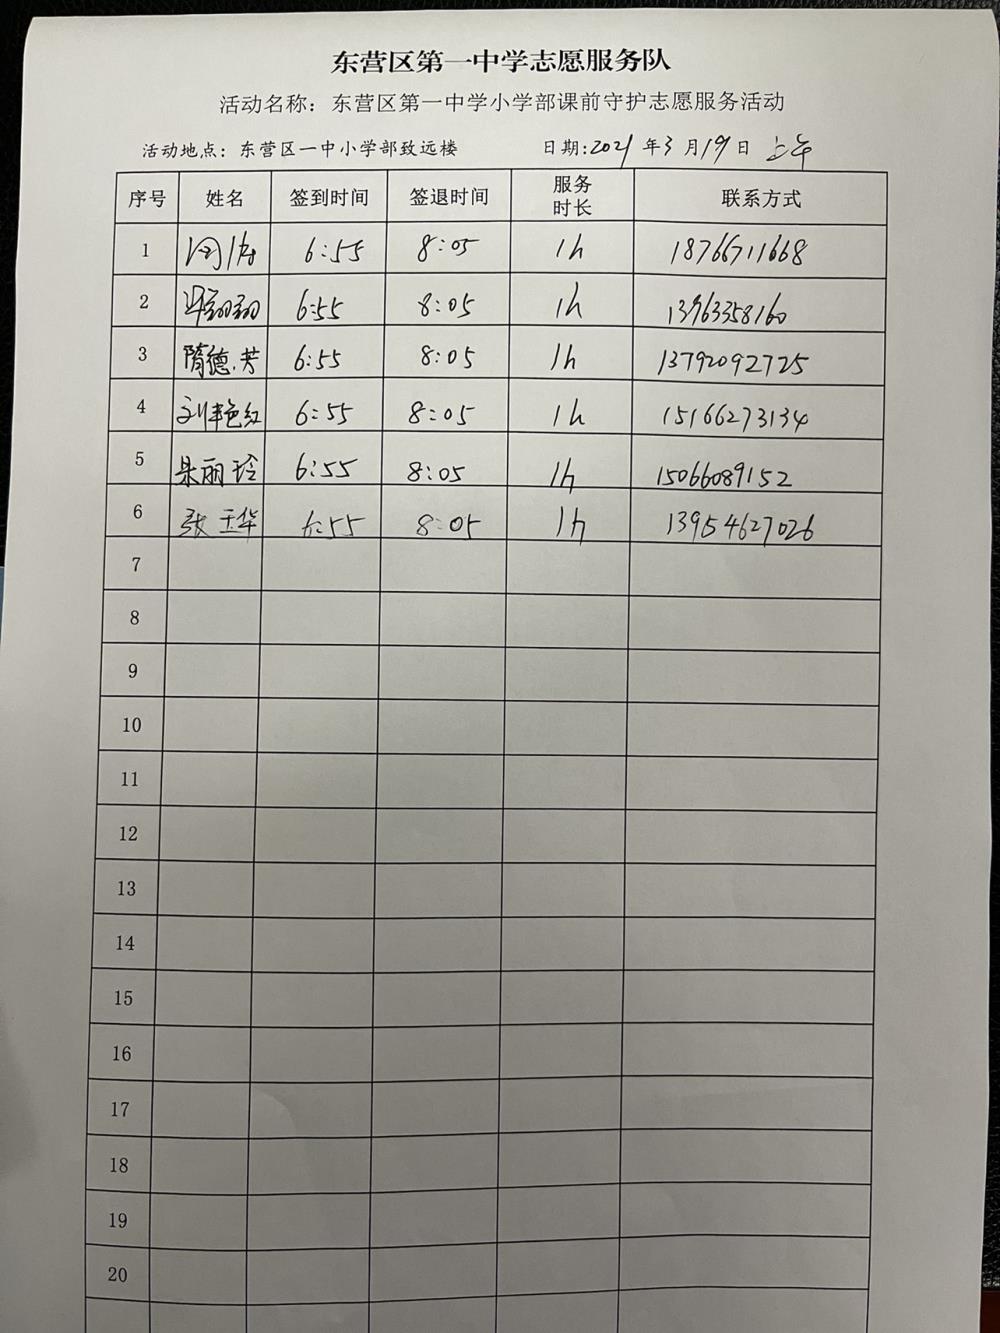 东营区第一中学志愿服务队
活动名称：东营区第一中学小学部课前守护志愿服务活动
活动地点：东营区一中小学部致远楼 日期：2021年3月19日 上午
序号 姓名 签到时间 签退时间 服务时长 联系方式
1 6:55 8:05 1h 18766711668
2 翩翩 6:55 8:05 1h 13963358160
3 隋德芳 6:55 8:05 1h 13792092725
4 刘艳红 6:55 8:05 1h 15166273134
5 丽玲 6:55 8:05 1h 15066089152
6 张玉华 6:55 8:05 1h 13954627026
7
8
9
10
11
12
13
14
15
16
17
18
19
20